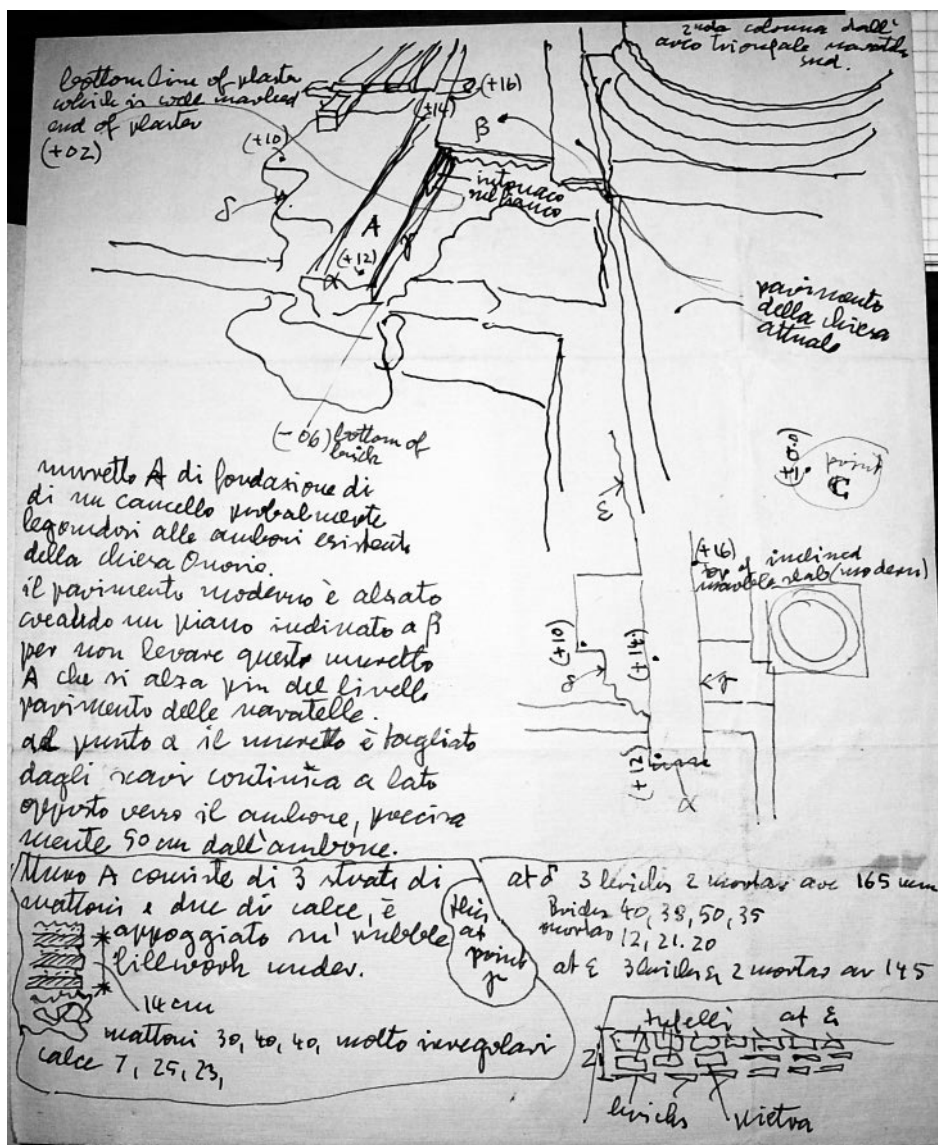 2nda colonna dall'
arco trionfale navatella
sud.
bottom line of plaster
which is well marked
end of plaster
(+02)
(+16)
(+14)
β
(+10)
δ
intonaco
sul fianco
A
γ
(+12)
α
pavimento
della chiesa
attuale
(-06) bottom of
brick
(±0.0)
point
C
ε
muretto A di fondazione di
di un cancello probalmente
legandosi alle amboni esistente
della chiesa Onorio.
il pavimento moderno è alzato
creando un piano inclinato a β
per non levare questo muretto
A che si alza piu del livello
pavimento delle navatelle.
al punto α il muretto è tagliato
dagli scavi continua a lato
opposto verso il ambone, precisa
mente 50 cm dall'ambone.
(+16)
top of inclined
marble slab (modern)
(+10)
(+14)
δ
γ
(+12)
α
Muro A consiste di 3 strati di
mattoni e due di calce, è
appoggiato su' rubble
fillwork under.
14 cm
mattoni 30, 40, 40, molto irregolari
calce 7, 25, 23,
this
at
point
γ
at δ 3 bricks 2 mortar ave 165 mm
Bricks 40, 38, 50, 35
mortar 12, 21. 20
at ε 3 bricks 2 mortar av 145
tufelli at ε
bricks pietra